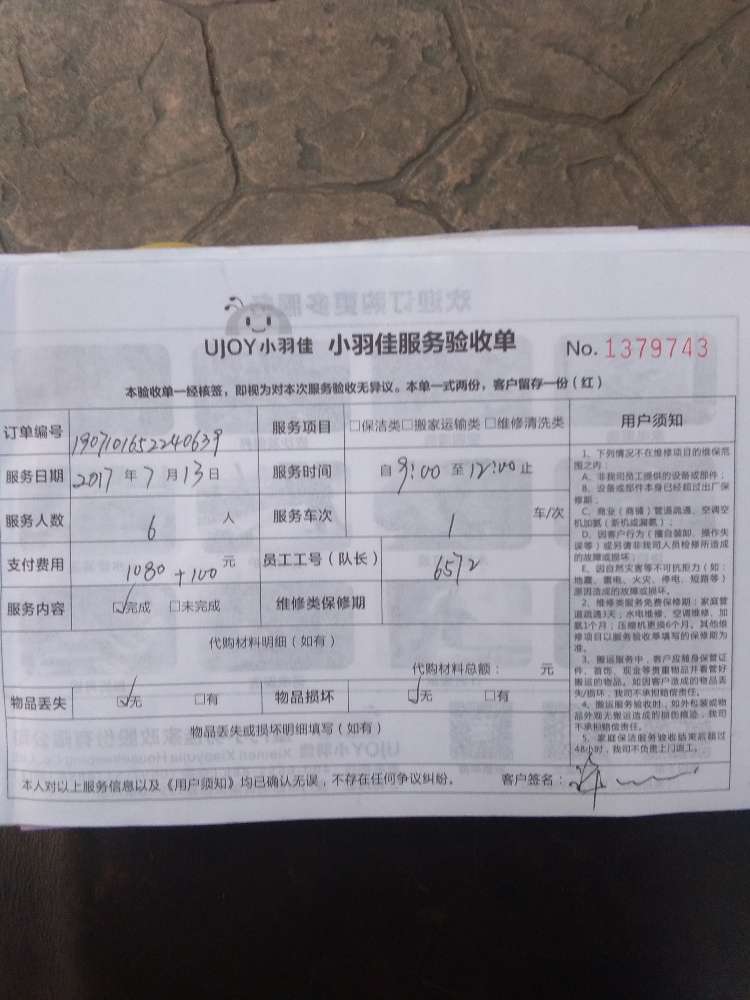 UJOY小羽佳 小羽佳服务验收单 No. 1379743
本验收单一经核签，即视为对本次服务验收无异议。本单一式两份，客户留存一份（红）
订单编号 1907101652240639 服务项目 □保洁类□搬家运输类 □维修清洗类
服务日期 2017 年 7 月 13 日 服务时间 自 9:00 至 12:00 止
服务人数 6 人 服务车次 1 车/次
支付费用 1080 +100 元 员工工号（队长） 6572
服务内容 ☑完成 □未完成 维修类保修期
代购材料明细（如有）
代购材料总额： 元
物品丢失 ☑无 □有 物品损坏 ☑无 □有
物品丢失或损坏明细填写（如有）
本人对以上服务信息以及《用户须知》均已确认无误，不存在任何争议纠纷。 客户签名：
用户须知
1、下列情况不在维修项目的维保范
围之内：
A、非我司员工提供的设备或部件；
B、设备或部件本身已经超过出厂保
修期；
C、商业（商铺）管道疏通、空调空
机加氨（新机或漏氨）；
D、因客户行为（擅自装卸、操作失
误等）或另请非我司人员检修所造成
的故障或损坏；
E、因自然灾害等不可抗拒力（如：
地震、雷电、火灾、停电、短路等）
原因造成的故障或损坏。
2、维修类服务免费保修期：家庭管
道疏通3天；水电维修、空调维修、加
氨1个月；压缩机更换6个月。其他维
修项目以服务验收单填写的保修期为
准。
3、搬运服务中，客户应随身保管证
件、首饰、现金等贵重物品并看管好
搬运的物品。如因客户造成的物品丢
失/损坏，我司不承担赔偿责任。
4、搬运服务验收时，如外包装或物
品外观无搬运造成的损伤痕迹，我司
不承担赔偿责任。
5、家庭保洁服务验收结束后超过
48小时，我司不负责上门返工。